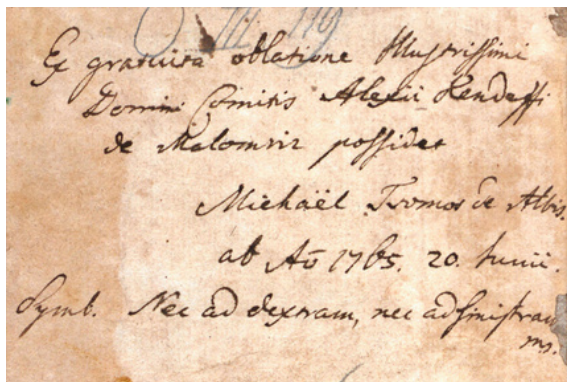 O III 119
Ex gratuita oblatione Illustrissimi
Domini Comitis Alexii Kendeffi
de Malomviz possidet
Michaël Tsomos de Albis.
ab Aō 1765. 20. Junii.
Symb. Nec ad dextram, nec ad sinistram
mp.